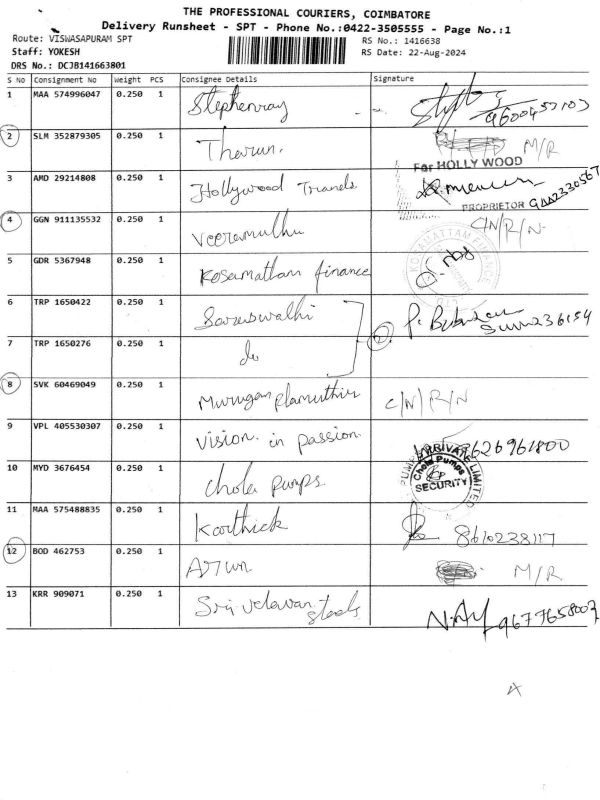 THE PROFESSIONAL COURIERS, COIMBATORE
Delivery Runsheet - SPT - Phone No.:0422-3505555 - Page No.:1
Route: VISWASAPURAM SPT
RS No.: 1416638
Staff: YOKESH
RS Date: 22-Aug-2024
DRS No.: DCJB141663801
S No Consignment No Weight PCS Consignee Details Signature
1 MAA 574996047 0.250 1 Stephenray 9600457103
2 SLM 352879305 0.250 1 Tharun. M/R
For HOLLY WOOD
3 AMD 29214808 0.250 1 Hollywood
PROPRIETOR
4 GGN 911135532 0.250 1 Veeramuthu C/N/R/N
5 GDR 5367948 0.250 1 Kosamattam finance
KOSAMATTAM FINANCE LTD
6 TRP 1650422 0.250 1
7 TRP 1650276 0.250 1 do
8 SVK 60469049 0.250 1 C/N/R/N
9 VPL 405530307 0.250 1 Vision in passion. 9626961800
10 MYD 3676454 0.250 1 Chola pumps
PUMPS PRIVATE LIMITED
Chola Pumps
SECURITY
11 MAA 575488835 0.250 1 Karthick 8610238117
12 BOD 462753 0.250 1 Arun. M/R
13 KRR 909071 0.250 1 Sri velavan steels 9677658007